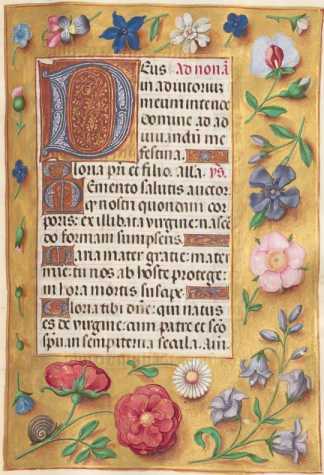 Deus ad nonā
in adiutorium
meum intende
domine ad ad
iuuandū me
festina.
Gloria pr̄i et filio. alla. ys.
Memento salutis auctor.
q̄ nostri quondam cor
poris: ex illibata virgine: nascē
do formam sumpseris.
Maria mater gratie: mater mie
tu nos ab hoste protege:
in hora mortis suscipe.
Gloria tibi dñe: qui natus
es de virgine: cum patre et sc̄o
spū in sempiterna secula. am̄.